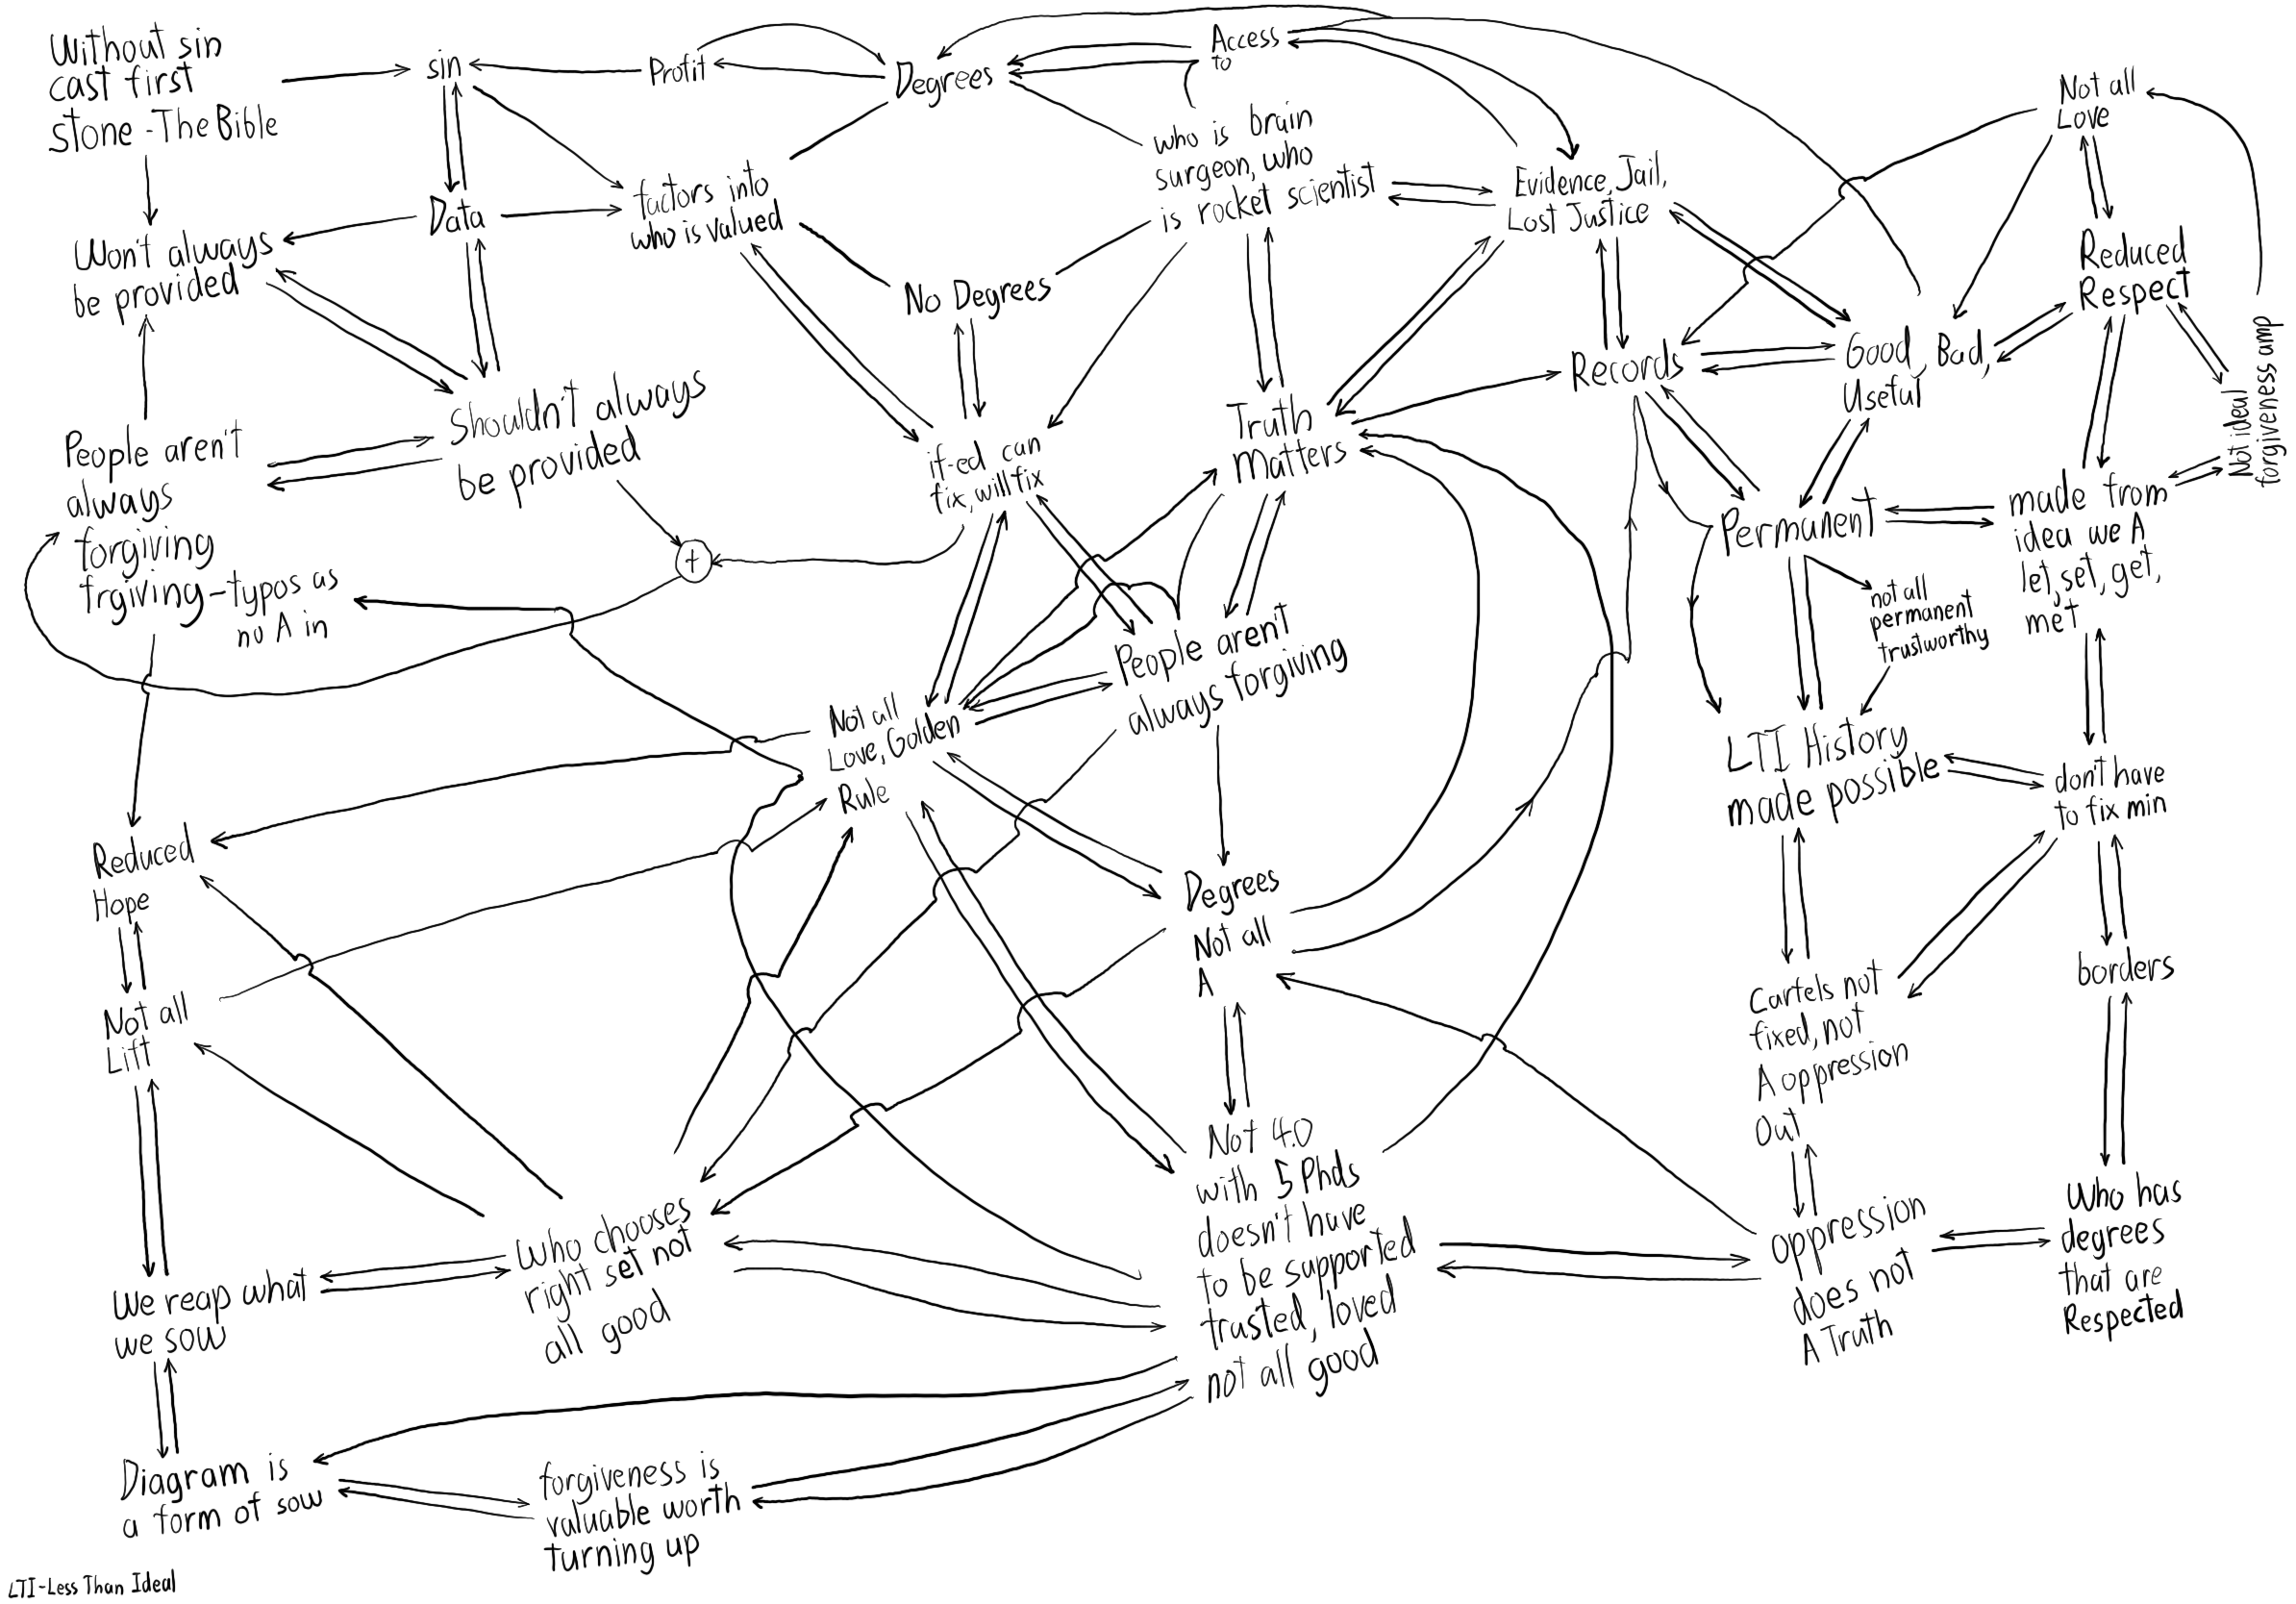 Without sin
cast first
stone - The Bible
sin
Profit
Degrees
Access
to
who is brain
surgeon, who
is rocket scientist
Evidence, Jail,
Lost Justice
Not all
Love
Data
factors into
who is valued
Won't always
be provided
No Degrees
Reduced
Respect
Records
Good, Bad,
Useful
Not ideal
forgiveness amp
People aren't
always
forgiving
frgiving - typos as
no A in
Shouldn't always
be provided
+
if-ed can
fix, will fix
Truth
Matters
Permanent
made from
idea we A
let, set, get,
met
not all
permanent
trustworthy
People aren't
always forgiving
Not all
Love, Golden
Rule
LTI History
made possible
don't have
to fix min
Reduced
Hope
Degrees
Not all
A
Not all
Lift
Cartels not
fixed, not
A oppression
Out
borders
Not 4.0
with 5 Phds
doesn't have
to be supported
trusted, loved
not all good
We reap what
we sow
Who chooses
right set not
all good
oppression
does not
A Truth
Who has
degrees
that are
Respected
Diagram is
a form of sow
forgiveness is
valuable worth
turning up
LTI-Less Than Ideal